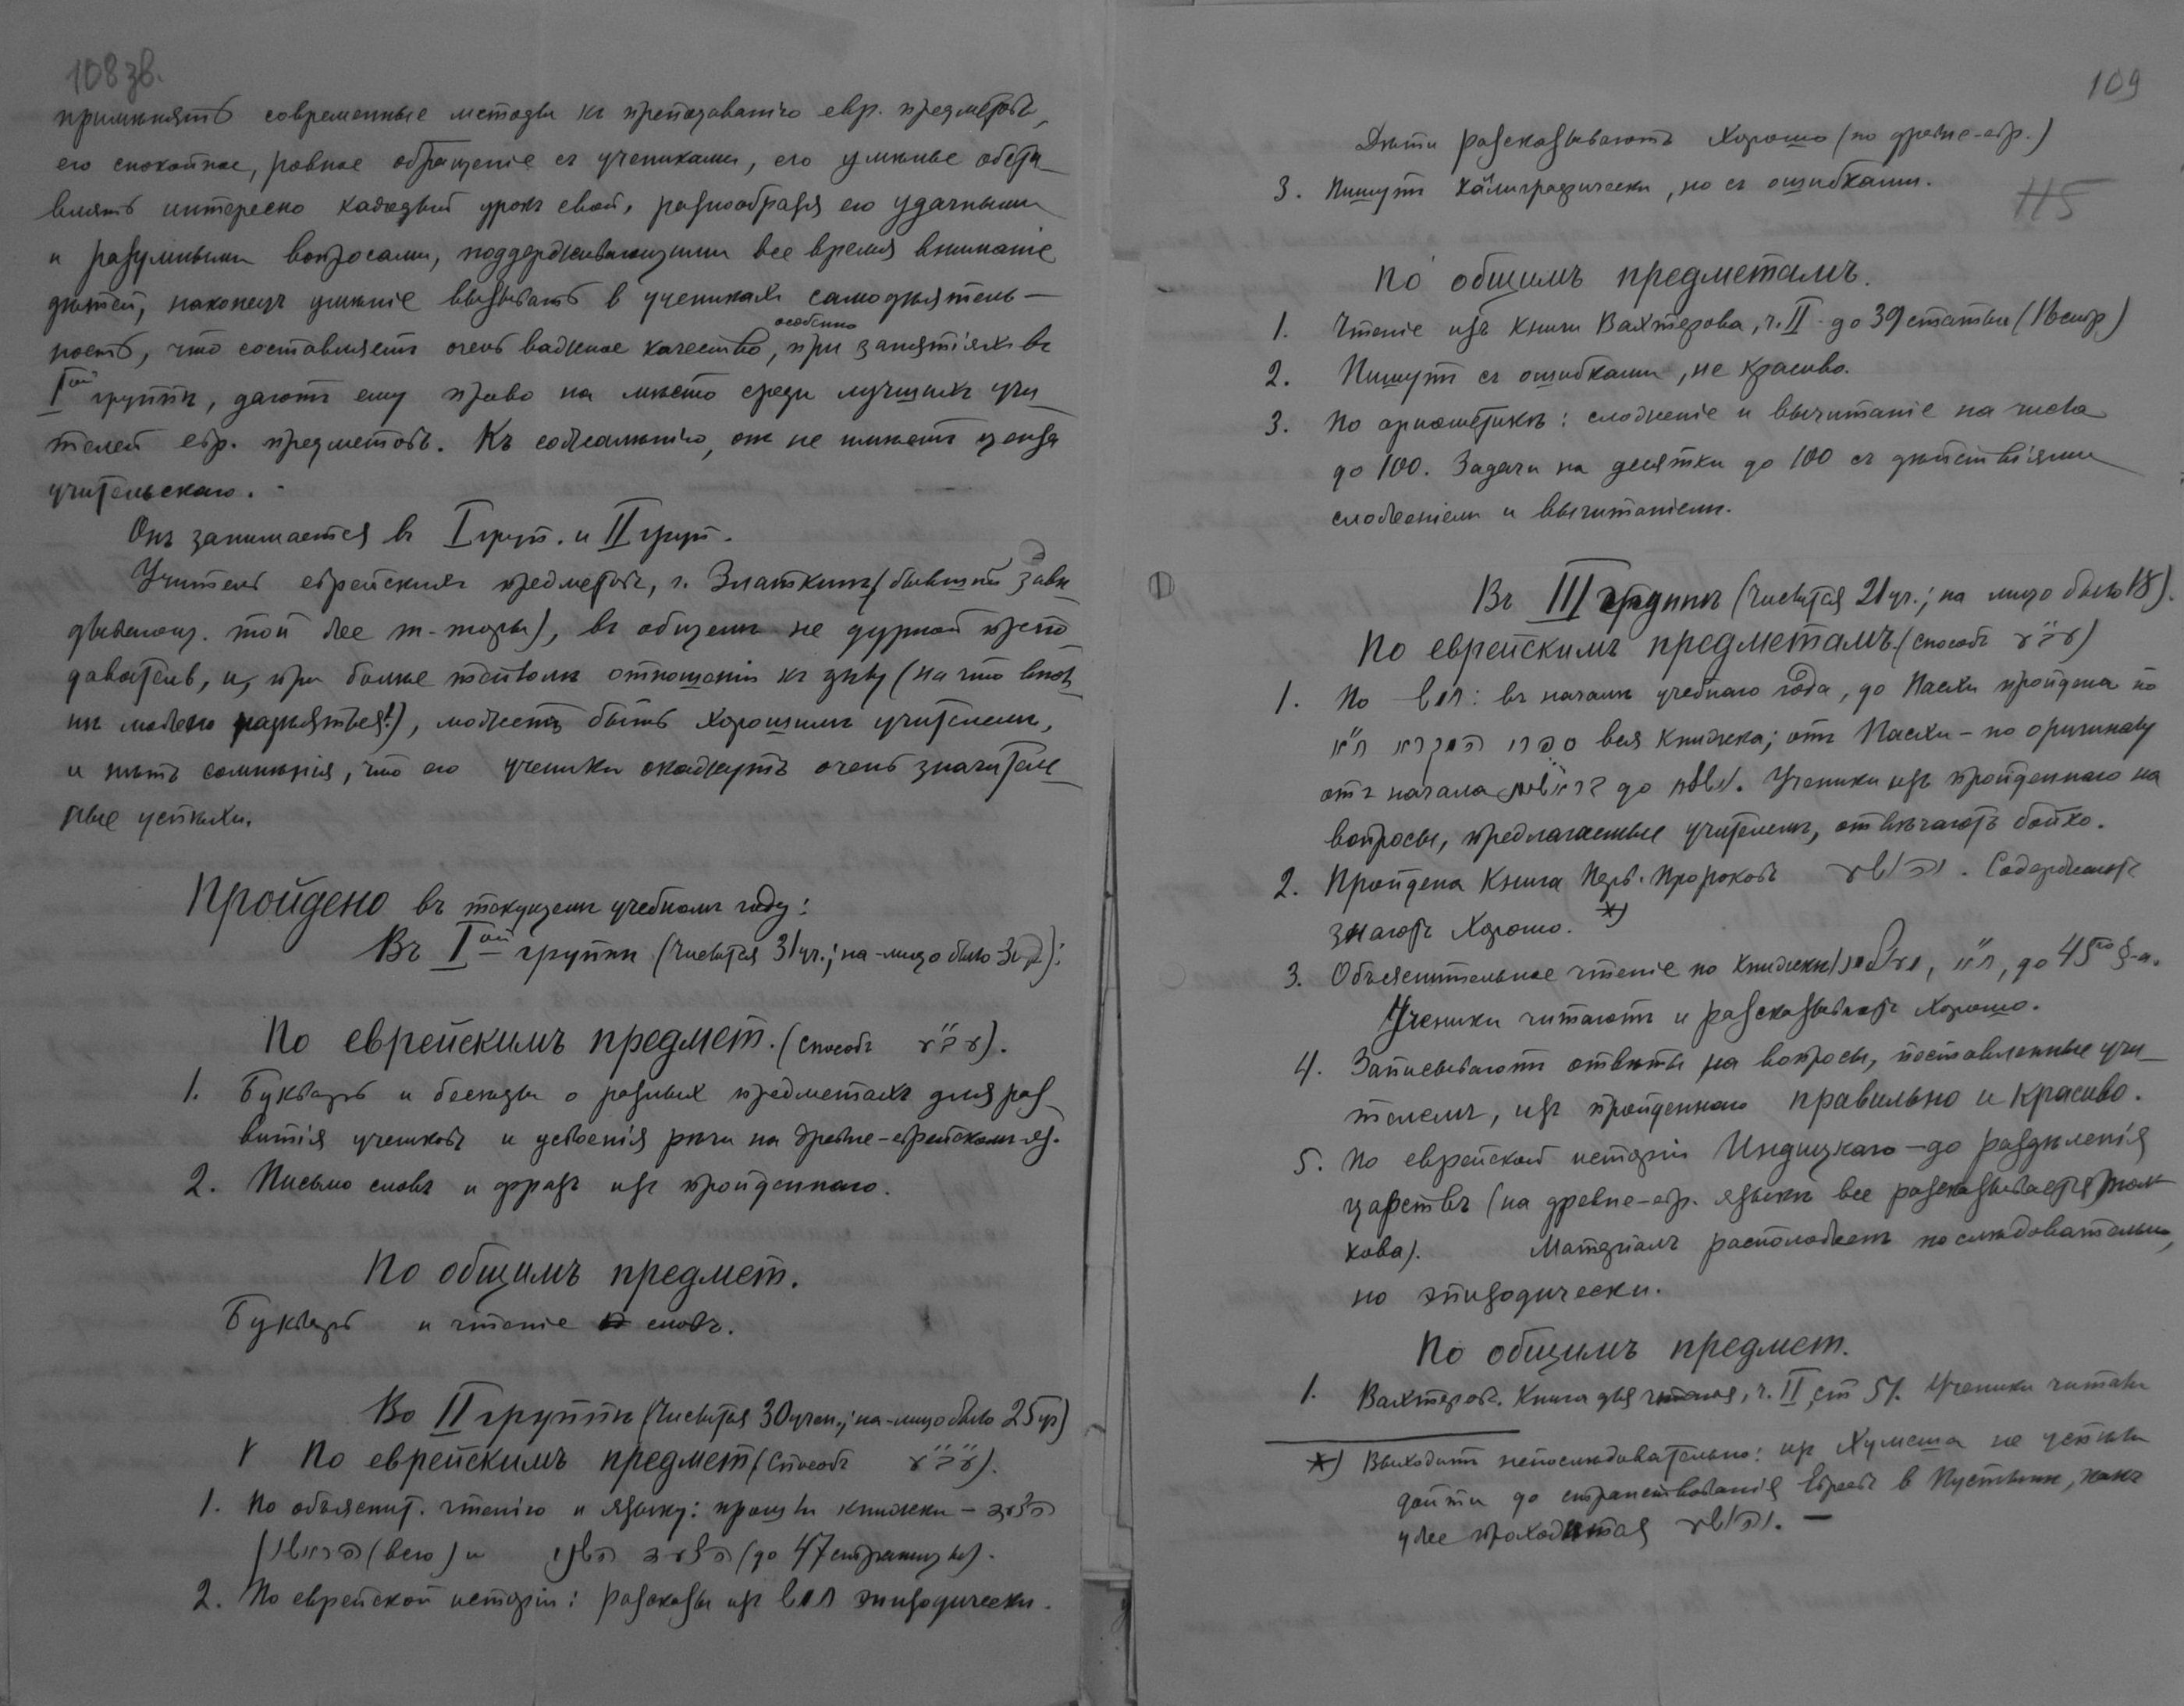 108 зв.
примѣнять современные методы къ преподаванію евр. предметовъ,
его спокойное, ровное обращеніе съ учениками, его умѣнье обста
влять интересно каждый урокъ свой, разнообразя его удачными
и разумными вопросами, поддерживающими все время вниманіе
дѣтей, наконецъ умѣніе вызывать в ученикахъ самодѣятель-
ность, что составляетъ очень важное качество, особенно при занятіяхъ въ
Iой группѣ, даютъ ему право на мѣсто среди лучшихъ учи
телей евр. предметовъ. Къ сожалѣнію, онъ не имѣетъ ценза
учительскаго. -
Онъ занимается въ I груп. и II груп.
Учитель еврейскихъ предметовъ, г. Златкинъ (бывшій завѣ
дывающ. той же т-торы), въ общемъ не дурной препо
даватель, и, при болѣе тепломъ отношеніи къ дѣлу (на что впол
нѣ можно надѣяться!), можетъ быть хорошимъ учителемъ,
и нѣтъ сомнѣнія, что его ученики окажутъ очень значитель
ные успѣхи.
Пройдено въ текущемъ учебномъ году:
Въ Iой группѣ (числится 31 уч.; на-лицо было 30):
По еврейскимъ предмет. (способъ עּבּע).
1. Букварь и бесѣды о разныхъ предметахъ для раз
витія учениковъ и усвоенія рѣчи на древне-еврейскомъ яз.
2. Письмо словъ и фразъ изъ пройденнаго.
По общимъ предмет.
Букварь и чтеніе словъ.
Во II группѣ (числится 30 учен.; на-лицо было 25 уч)
По еврейскимъ предмет (способъ עּבּע).
1. По объяснит. чтенію и языку: прошли книжки -
(всю) и (до 47 страницы).
2. По еврейской исторіи: разсказы изъ חומש эпизодически.
109
Дѣти разсказываютъ хорошо (по древне-евр.)
3. Пишутъ каллиграфически, но съ ошибками.
115
По общимъ предметамъ.
1. Чтеніе изъ книги Вахтерова, ч. II до 39 статьи (16 стр)
2. Пишутъ съ ошибками, не красиво.
3. По арифметикѣ: сложеніе и вычитаніе на числа
до 100. Задачи на десятки до 100 съ дѣйствіями
сложеніемъ и вычитаніемъ.
Въ III группѣ (числится 21 уч.; на лицо было 18).
По еврейскимъ предметамъ (способъ עּבּע)
1. По חומש: въ началѣ учебнаго года, до Пасхи пройдена по
вся книжка; отъ Пасхи - по оригиналу
отъ начала בראשית до. Ученики изъ пройденнаго на
вопросы, предлагаемые учителемъ, отвѣчаютъ бойко.
2. Пройдена книга Перв. Пророковъ יהושע. Содержаніе
знаютъ хорошо. *)
3. Объяснительное чтеніе по книжкѣ, ח״א, до 45го §-а.
Ученики читаютъ и разсказываютъ хорошо.
4. Записываютъ отвѣты на вопросы, поставленные учи
телемъ, изъ пройденнаго правильно и красиво.
5. По еврейской исторіи Индицкаго - до раздѣленія
царствъ (на древне-евр. языкѣ все разсказывается толк
ково). Матеріалъ расположенъ послѣдовательно,
но эпизодически.
По общимъ предмет.
1. Вахтеровъ. Книга для чтенія, ч. II, ст 51. Ученики читали
*) Выходитъ непослѣдовательно: изъ Хумеша не успѣли
дойти до странствованія Евреевъ в Пустынѣ, какъ
уже проходится יהושע. -